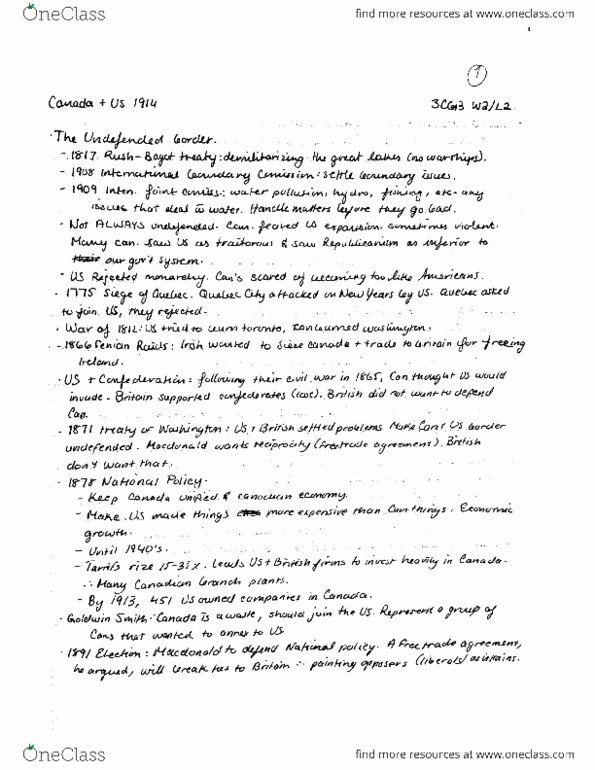 OneClass
find more resources at www.oneclass.com
1
Canada + US 1914
3CG3 W2/L2
· The Undefended Border.
- 1817. Rush-Bagot treaty: demilitarizing the great lakes (no warships).
- 1908 International Boundary Comission: settle boundary issues.
- 1909 Inten. Joint comiss: water pollution, hydro, fishing, etc- any
issues that deal w water. Handle matters before they go bad.
- Not ALWAYS undefended. Can. feared US expansion. sometimes violent.
Many can. saw US as traitorous & saw Republicanism as inferior to
our gov't system.
- US Rejected monarchy. Can's scared of becoming too like Americans.
- 1775 Siege of Quebec. Quebec City attacked on New Years by US. Quebec asked
to join US, they rejected.
- War of 1812: US tried to burn toronto, burned washington.
- 1866 Fenian Raids: Irish wanted to Size canada + trade to Britain for freeing
Ireland.
· US + Confederation: following their civil war in 1865, Can thought US would
invade - Britain supported confederates (lost). British did not want to defend
Can.
- 1871 treaty of Washington: US + British settled problems Make Can + US border
undefended. Macdonald wants reciprocity (free trade agreement). British
don't want that.
- 1878 National Policy.
- Keep Canada unified & canadian economy.
- Make US made things more expensive than Can things. Economic
growth.
- Until 1940's.
- Tarrifs rize 15-35%. Leads US + British firms to invest heavily in Canada.
∴ Many Canadian branch plants.
- By 1913, 451 US owned companies in Canada.
· Goldwin Smith: Canada is a waste, should join the US. Represent a group of
Cans that wanted to annex to US
· 1891 Election: Macdonald to defend National policy. A free trade agreement,
he argued, will break ties to Britain ∴ painting opposers (liberals) as
OneClass
find more resources at www.oneclass.com